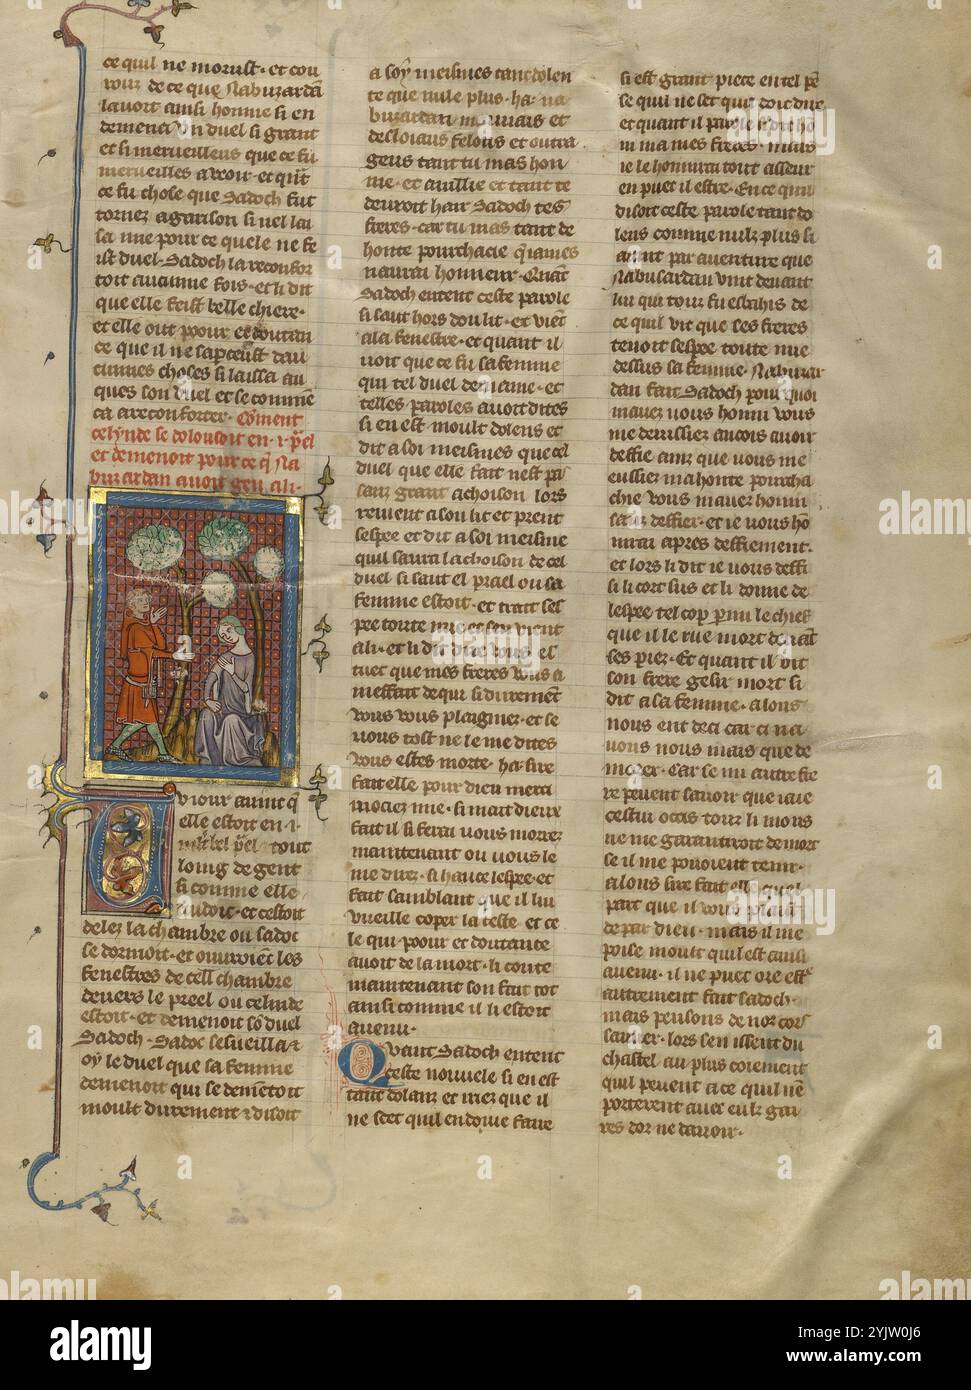 ce quil ne morust · et cou
rouz de ce que Nabuzardã
lauoit ainsi honnie si en
demena un duel si grant
et si merueilleus que ce fu
merueilles a veoir · et quãt
ce fu chose que Sadoch fut
tornez a garison si uel lai
sa mie pour ce quele ne fe
ist duel · Sadoch la reconfor
toit aucunne fois · et li dit
que elle feist belle chiere ·
et elle out poour et doutan
ce que il ne saperceust dau
cunnes choses si laissa au
ques son duel et se comme
ca a reconforter · Cõment
celynde se doulousoit en · i · p̃el
et demenoit pour ce q̃ Na
buzardan auoit geu a li ·
V i iour auint q̃
elle estoit en · i ·
p̃el tout
loing de gent
si comme elle
cuidoit · et estoit
delez la chambre ou sadoc
se dormoit · et ouuroiẽt les
fenestres de cell chambre
deuers le preel ou celinde
estoit · et demenoit sõ duel
Sadoch · Sadoc sesueilla ⁊
oy le duel que sa femme
demenoit qui se demẽtoit
moult durement ⁊ disoit
a soy meismes tant dolen
te que nule plus · ha · na
buzardan mauuais et
desloiaus felons et outra
geus tant tu mas hon
nie · et auillie et tant te
deuroit hair Sadoch tes
freres · car tu mas tant de
honte pourchacie q̃ iames
naurai honneur · Quãt
Sadoch entent ceste parole
si saut hors dou lit · et viẽt
a la fenestre · et quant il
voit que ce fu sa femme
qui tel duel demaine · et
telles paroles auoit dites
si en est moult dolens et
dit a soi meismes que cel
duel que elle fait nest pas
sanz grant achoison lors
reuient a son lit et prent
sespee et dit a soi meisme
quil saura lachoison de cel
duel si saut el prael ou sa
femme estoit · et trait ses
pee toute nue et sen vient
a li · et li dit dite vous el
tuet que mes freres vous a
meffait de qui si durement
vous vous plaignez · et se
vous tost ne le me dites
vous estes morte · ha · sire
fait elle pour dieu merci
nociez mie · si mait dieux
fait il si ferai vous morrez
maintenant ou vous le
me direz · si hauce lespee · et
fait samblant que il liu
vueille coper la teste · et ce
le qui poour et doutance
auoit de la mort · li conte
maintenant son fait tot
ainsi comme il li estoit
auenu ·
Quant Sadoch entent
ceste nouuele si en est
tant dolanz et iriez que il
ne scet quil en doiue faire
si est grant piece en tel pẽ
se quil ne set quil doie dire
et quant il parole li dit hõ
ni ma mes freres · mais
ie le honnirai tout asseur
en puet il estre · En ce quil
disoit ceste parole tant do
lens comme nulz plus si
auint par auenture que
Nabusardan vint deuant
lui qui touz fu esbahis de
ce quil vit que ses freres
tenoit sespee toute nue
dessus sa femme · Nabuzar
dan fait Sadoch pour quoi
mauez uous honni vous
me deuissiez ancois auoir
deffie ainz que vous me
eussiez ma honte pourcha
cie vous mauez honni
sanz deffier · et ie uous hõ
nirai apres deffiement ·
et lors li dit ie uous deffi
si li cort sus et li donne de
lespee tel cop p̃mi le chief
que il le rue mort deuãt
ses piez · Et quant il vit
son frere gesir mort si
dit a sa femme · alons
nous ent deci car ci na
uons nous mais que de
morer · Car se mi autre fre
re peuent sauoir que iaie
cestui occis touz li mons
ne me garantiroit de mort
se il me pouoient tenir ·
alons sire fait elle quel
part que il vous plaira
de par dieu · mais il me
poise moult quil est ainsi
auenu · il ne puet ore estre
autrement fait sadoch ·
mais pensons de noz cors
sauuer · lors sen issent du
chastel au plus coiement
quil peuent a ce quil nẽ
porterent auec eulz gai
res dor ne dauoir ·
alamy
Image ID: 2YJW0J6
www.alamy.com